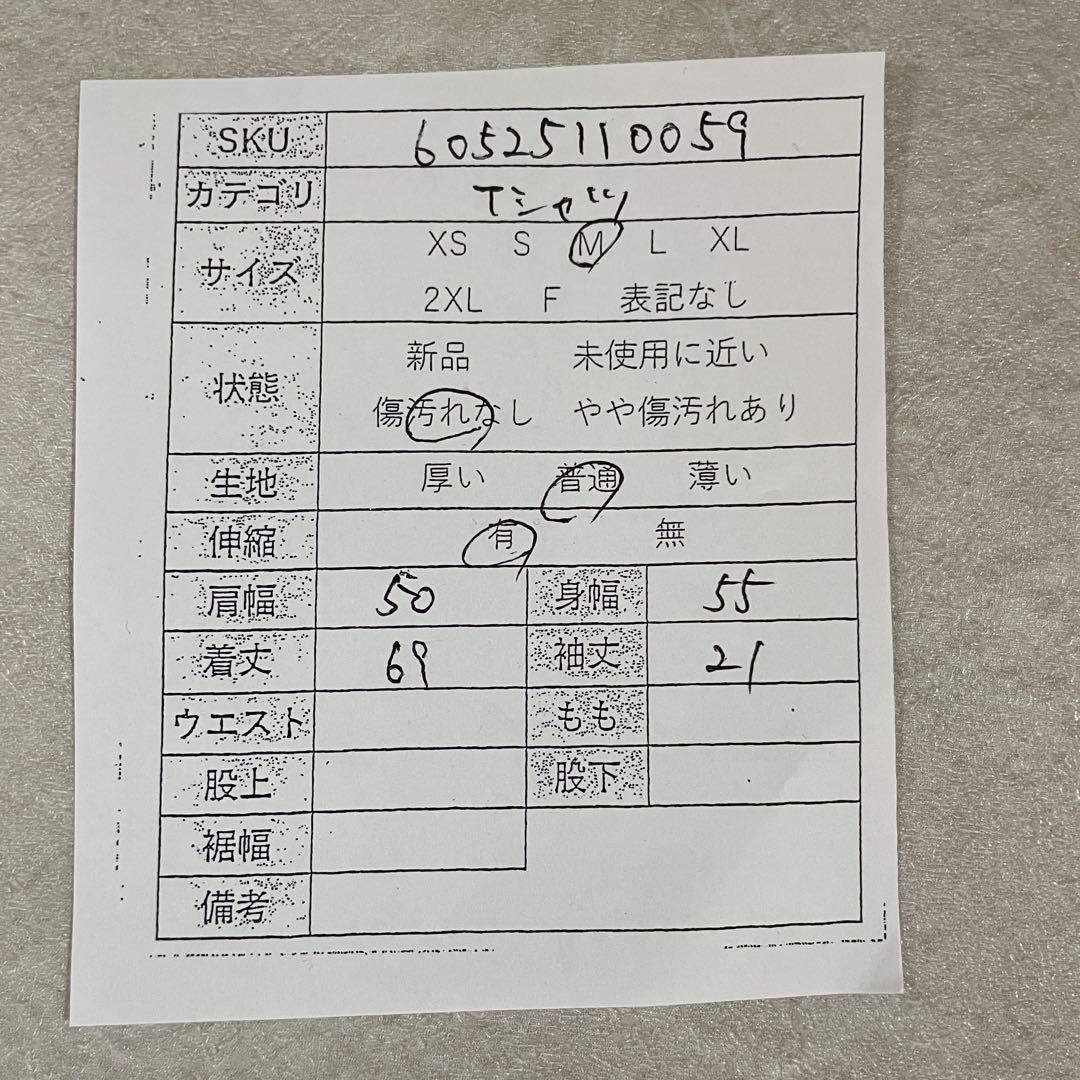 SKU 60525110059
カテゴリ Tシャツ
サイズ XS S M L XL
2XL F 表記なし
状態 新品 未使用に近い
傷汚れなし やや傷汚れあり
生地 厚い 普通 薄い
伸縮 有 無
肩幅 50 身幅 55
着丈 69 袖丈 21
ウエスト もも
股上 股下
裾幅
備考